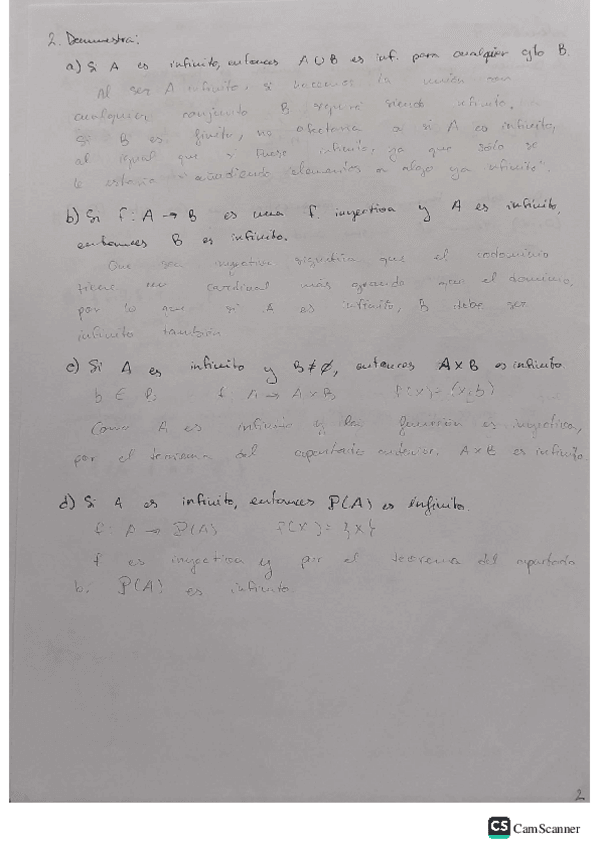 2. Demuestra:
a) Si A es infinito, entonces A ∪ B es inf. para cualquier cjto B.
Al ser A infinito, si hacemos la unión con
cualquier conjunto B seguirá siendo infinito.
Si B es finito, no afectaría a si A es infinito,
al igual que si fuese infinito, ya que sólo se
le estaría "añadiendo elementos a algo ya infinito".
b) Si f: A → B es una f. inyectiva y A es infinito,
entonces B es infinito.
Que sea inyectiva significa que el codominio
tiene un cardinal más grande que el dominio,
por lo que si A es infinito, B debe ser
infinito también
c) Si A es infinito y B ≠ ∅, entonces A x B es infinito
b ∈ B; f: A → A x B, f(x) = (x,b)
Como A es infinito y la función es inyectiva,
por el teorema del apartado anterior. A x B es infinito
d) Si A es infinito, entonces P(A) es infinito.
f: A → P(A) f(x) = {x}
f es inyectiva y por el teorema del apartado
b; P(A) es infinito.
2
CS CamScanner